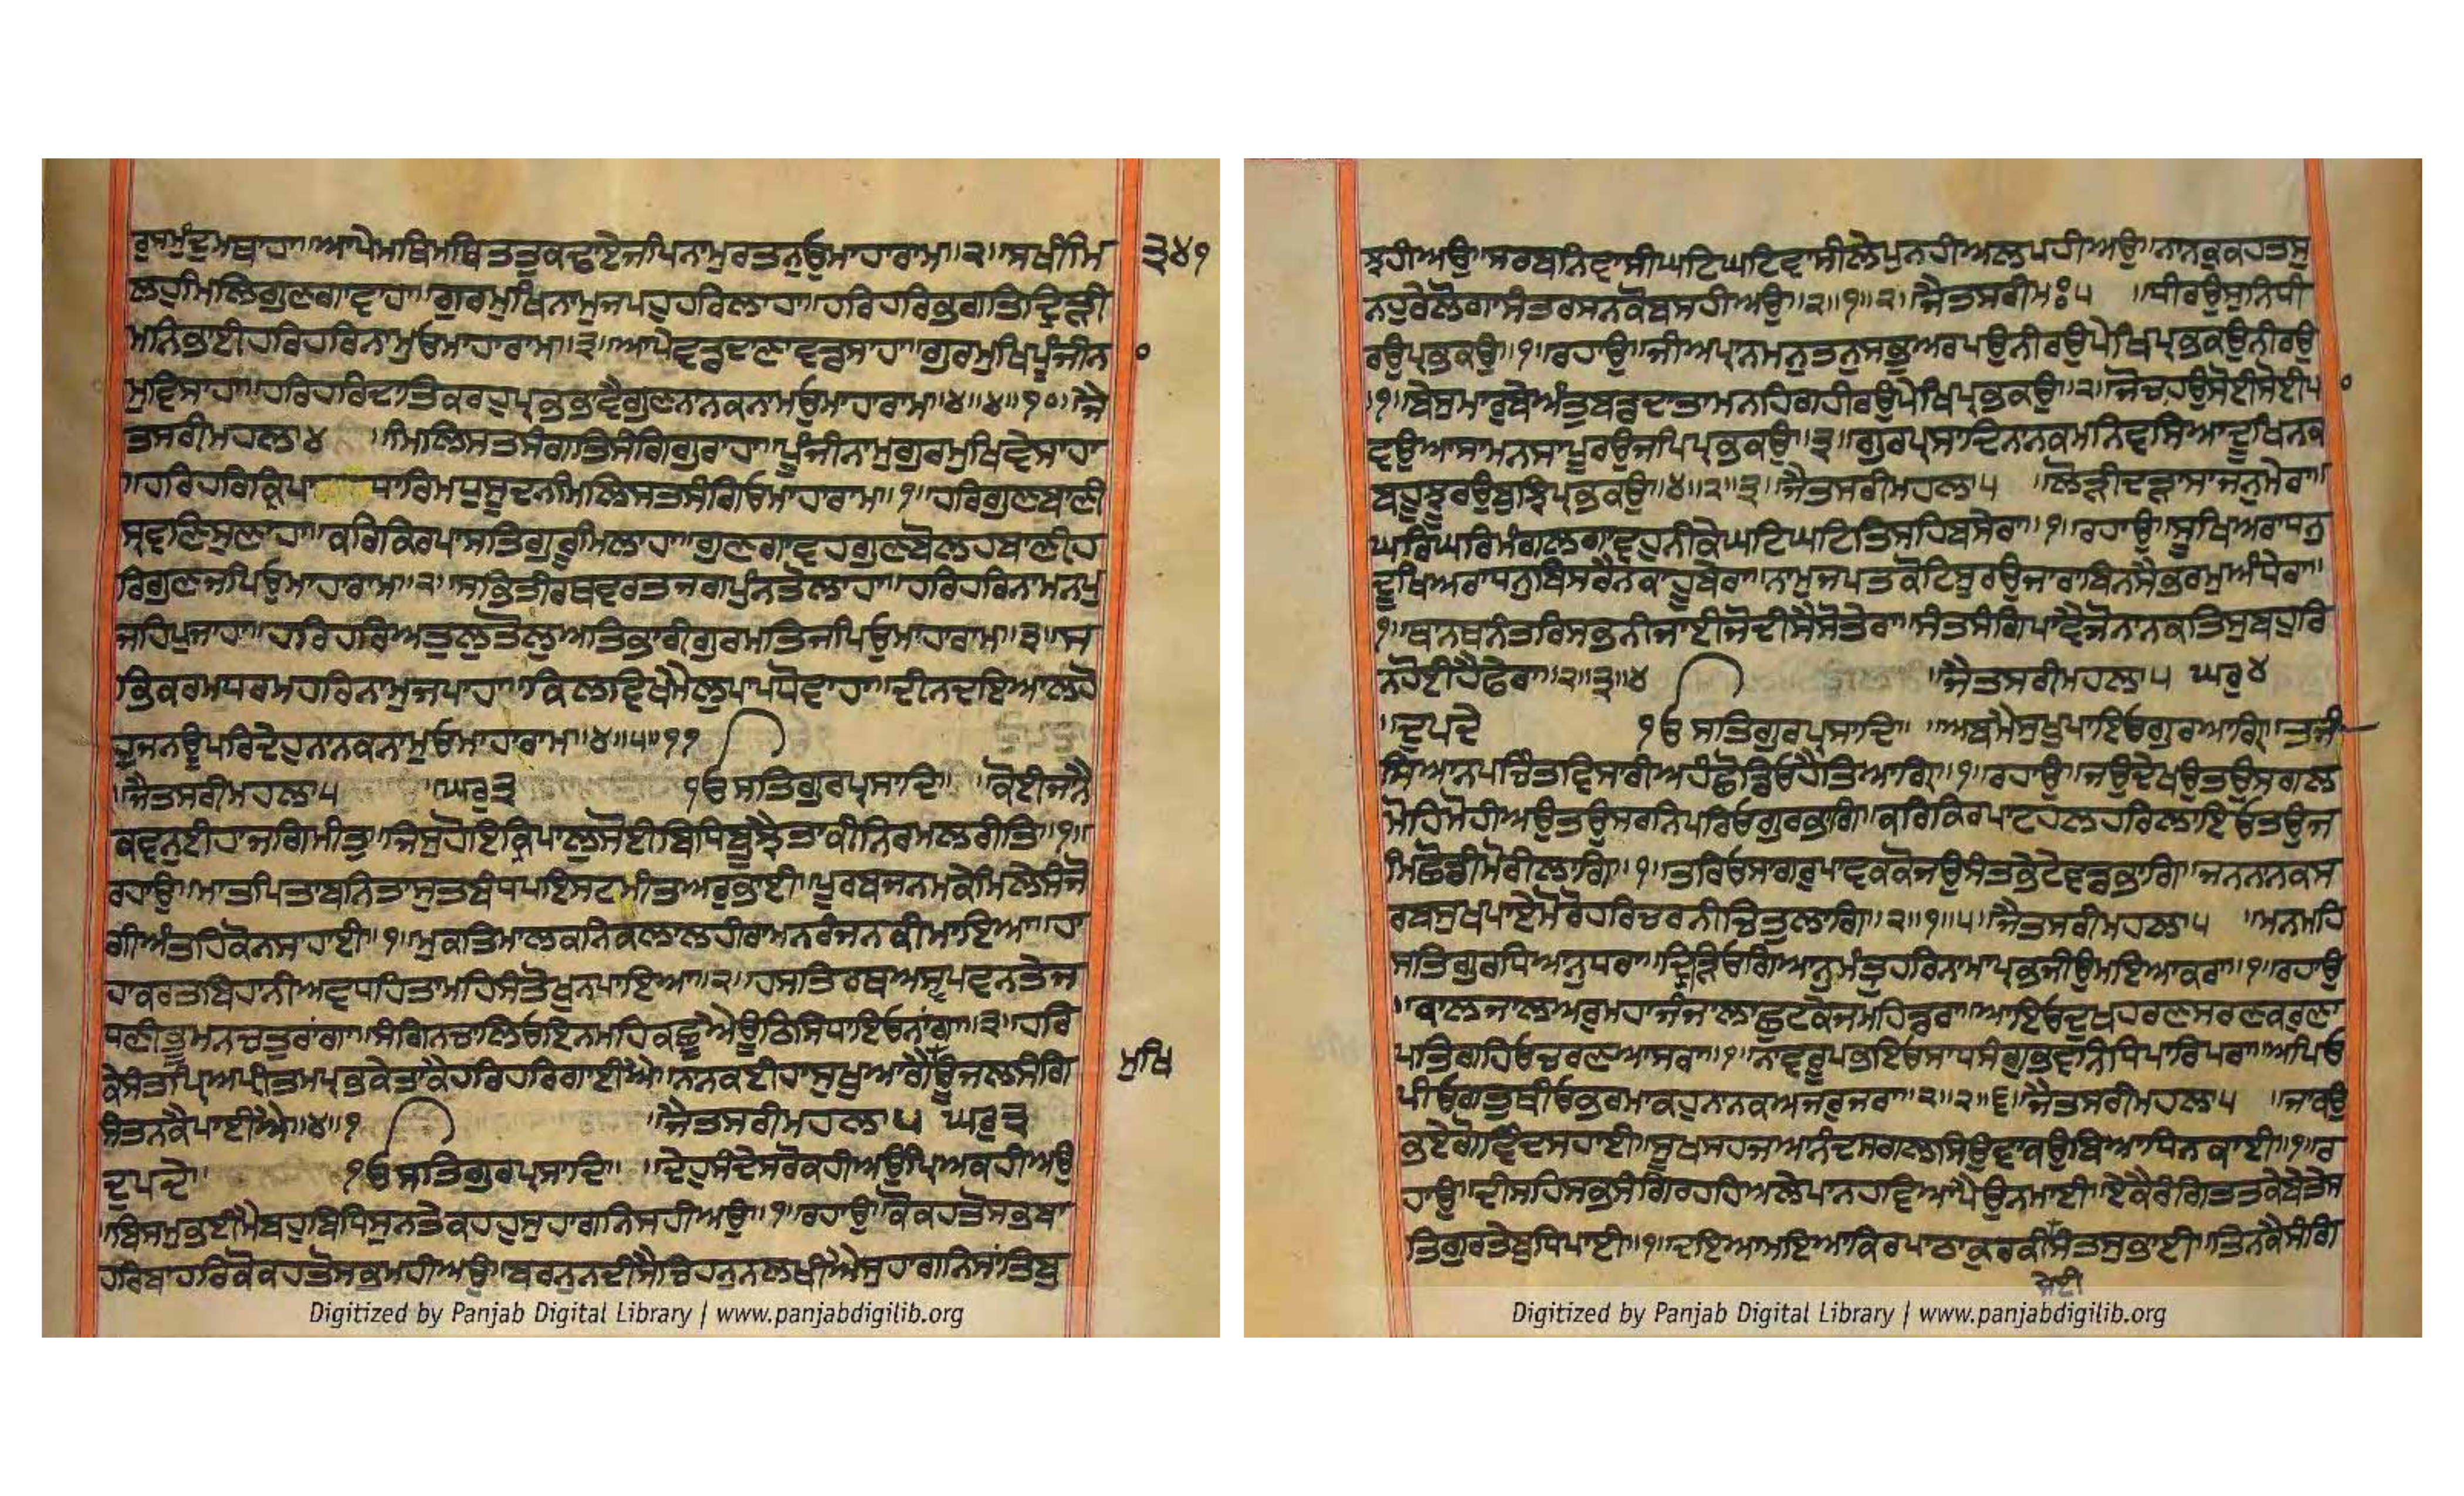 ਰੁਸਮੁੰਦੁਮਥਾਹਾ॥ਆਪੇਮਥਿਮਥਿਤਤੁਕਢਾਏਜਪਿਨਾਮੁਰਤਨੁਓੁਮਾਹਾਰਾਮ॥੨॥ਸਖੀਮਿ
ਲਹੁਮਿਲਿਗੁਣਗਾਵਾਹਾ॥ਗੁਰਮੁਖਿਨਾਮੁਜਪਹੁਹਰਿਲਾਹਾ॥ਹਰਿਹਰਿਭਗਤਿਦ੍ਰਿੜੀ
ਮਨਿਭਾਈਹਰਿਹਰਿਨਾਮੁਓਮਾਹਾਰਾਮ॥੩॥ਆਪੇਵਡਦਾਣਾਵਡਸਾਹਾ॥ਗੁਰਮੁਖਿਪੂੰਜੀਨਾ
ਮੁਵਿਸਾਹਾ॥ਹਰਿਹਰਿਦਾਤਿਕਰਹੁਪ੍ਰਭਭਾਵੈਗੁਣਨਾਨਕਨਾਮਓੁਮਾਹਾਰਾਮ॥੪॥੪॥੧੦॥ਜੈ
ਤਸਰੀਮਹਲਾ੪ ॥ਮਿਲਿਸਤਸੰਗਤਿਸੰਗਿਗੁਰਾਹਾ॥ਪੂੰਜੀਨਾਮੁਗੁਰਮੁਖਿਵੇਸਾਹਾ
॥ਹਰਿਹਰਿਕ੍ਰਿਪਾ ਧਾਰਿਮਧੁਸੂਦਨਮਿਲਿਸਤਸੰਗਿਓਮਾਹਾਰਾਮ॥੧॥ਹਰਿਗੁਣਬਾਣੀ
ਸ੍ਰਵਣਿਸੁਣਾਹਾ॥ਕਰਿਕਿਰਪਾਸਤਿਗੁਰੂਮਿਲਾਹਾ॥ਗੁਣਗਾਵਹਗੁਣਬੋਲਹਬਾਣੀਹ
ਰਿਗੁਣਜਪਿਓੁਮਾਹਾਰਾਮ॥੨॥ਸਭਿਤੀਰਥਵਰਤਜਗਪੁੰਨਤੋਲਾਹਾ॥ਹਰਿਹਰਿਨਾਮਨਪੁ
ਜਹਿਪੁਜਾਹਾ॥ਹਰਿਹਰਿਅਤੁਲੁਤੋਲੁਅਤਿਭਾਰੀਗੁਰਮਤਿਜਪਿਓੁਮਾਹਾਰਾਮ॥੩॥ਸ
ਭਿਕਰਮਧਰਮਹਰਿਨਾਮੁਜਪਾਹਾ॥ਕਿਲਵਿਖਮੈਲੁਪਾਪਧੋਵਾਹਾ॥ਦੀਨਦਇਆਲਹੋ
ਹੁਜਨਊਪਰਿਦੇਹੁਨਾਨਕਨਾਮੁਓਮਾਹਾਰਾਮ॥੪॥੫॥੧੧
॥ਜੈਤਸਰੀਮਹਲਾ੫ ॥ਘਰੁ੩ ੴਸਤਿਗੁਰਪ੍ਰਸਾਦਿ॥ ॥ਕੋਈਜਾਨੈ
ਕਵਨੁਈਹਾਜਗਿਮੀਤੁ॥ਜਿਸੁਹੋਇਕ੍ਰਿਪਾਲੁਸੋਈਬਿਧਿਬੂਝੈਤਾਕੀਨਿਰਮਲਰੀਤਿ॥੧॥
ਰਹਾਉ॥ਮਾਤਪਿਤਾਬਨਿਤਾਸੁਤਬੰਧਪਇਸਟਮੀਤਅਰੁਭਾਈ॥ਪੂਰਬਜਨਮਕੇਮਿਲੇਸੰਜੋ
ਗੀਅੰਤਹਿਕੋਨਸਹਾਈ॥੧॥ਮੁਕਤਿਮਾਲਕਨਿਕਲਾਲਹੀਰਾਮਨਰੰਜਨਕੀਮਾਇਆ॥ਹਾ
ਹਾਕਰਤਬਿਹਾਨੀਅਵਧਹਿਤਾਮਹਿਸੰਤੋਖੁਨਪਾਇਆ॥੨॥ਹਸਤਿਰਥਅਸ੍ਵਪਵਨਤੇਜ
ਧਣੀਭੂਮਨਚਤੁਰਾਂਗਾ॥ਸੰਗਿਨਚਾਲਿਓਇਨਮਹਿਕਛੂਐਊਠਿਸਿਧਾਇਓਨਾਂਗਾ॥੩॥ਹਰਿ
ਕੇਸੰਤਪ੍ਰਿਅਪ੍ਰੀਤਮਪ੍ਰਭਕੇਤਾਕੈਹਰਿਹਰਿਗਾਈਐ॥ਨਾਨਕਈਹਾਸੁਖੁਆਗੈਊਜਲਸੰਗਿ
ਮੁਖਿ
ਸੰਤਨਕੈਪਾਈਐ॥੪॥੧ ॥ਜੈਤਸਰੀਮਹਲਾ੫ ਘਰੁ੩
ਦੁਪਦੇ॥ ੴਸਤਿਗੁਰਪ੍ਰਸਾਦਿ॥ ॥ਦੇਹੁਸੰਦੇਸਰੋਕਹੀਅਉਪ੍ਰਿਅਕਹੀਅਉ
॥ਬਿਸਮੁਭਈਮੈਬਹੁਬਿਧਿਸੁਨਤੇਕਹਹੁਸੁਹਾਗਨਿਸਹੀਅਉ॥੧॥ਰਹਾਉ॥ਕੋਕਹਤੋਸਭਬਾ
ਹਰਿਬਾਹਰਿਕੋਕਹਤੋਸਭਮਹੀਅਉ॥ਬਰਨੁਨਦੀਸੈਚਿਹਨੁਨਲਖੀਐਸੁਹਾਗਨਿਸਾਤਿਬੁ
੩੪੧
ਝਹੀਅਉ॥ਸਰਬਨਿਵਾਸੀਘਟਿਘਟਿਵਾਸੀਲੇਪੁਨਹੀਅਲਪਹੀਅਉ॥ਨਾਨਕੁਕਹਤਸੁ
ਨਹੁਰੇਲੋਗਾਸੰਤਰਸਨਕੋਬਸਹੀਅਉ॥੨॥੧॥੨॥ਜੈਤਸਰੀਮਃ੫ ॥ਧੀਰਉਸੁਨਿਧੀ
ਰਉਪ੍ਰਭਕਉ॥੧॥ਰਹਾਉ॥ਜੀਅਪ੍ਰਾਨਮਨੁਤਨੁਸਭੁਅਰਪਉਨੀਰਉਪੇਖਿਪ੍ਰਭਕਉਨੀਰਉ
॥੧॥ਬੇਸੁਮਾਰੁਬੇਅੰਤੁਬਡਦਾਤਾਮਨਹਿਗਹੀਰਉਪੇਖਿਪ੍ਰਭਕਉ॥੨॥ਜੋਚਾਹਉਸੋਈਸੋਈਪਾ
ਵਉਆਸਾਮਨਸਾਪੂਰਉਜਪਿਪ੍ਰਭਕਉ॥੩॥ਗੁਰਪ੍ਰਸਾਦਿਨਾਨਕਮਨਿਵਸਿਆਦੂਖਿਨਕ
ਬਹੂਝੂਰਉਬੁਝਿਪ੍ਰਭਕਉ॥੪॥੨॥੩॥ਜੈਤਸਰੀਮਹਲਾ੫ ॥ਲੋੜੀਦੜਾਸਾਜਨੁਮੇਰਾ॥
ਘਰਿਘਰਿਮੰਗਲਗਾਵਹੁਨੀਕੇਘਟਿਘਟਿਤਿਸਹਿਬਸੇਰਾ॥੧॥ਰਹਾਉ॥ਸੂਖਿਅਰਾਧਨੁ
ਦੂਖਿਅਰਾਧਨੁਬਿਸਰੈਨਕਾਹੂਬੇਰਾ॥ਨਾਮੁਜਪਤਕੋਟਿਸੂਰਉਜਾਰਾਬਿਨਸੈਭਰਮੁਅੰਧੇਰਾ॥
੧॥ਥਾਨਥਨੰਤਰਿਸਭਨੀਜਾਈਜੋਦੀਸੈਸੋਤੇਰਾ॥ਸੰਤਸੰਗਿਪਾਵੈਜੋਨਾਨਕਤਿਸੁਬਹੁਰਿ
ਨਹੋਈਹੈਫੇਰਾ॥੨॥੩॥੪ ॥ਜੈਤਸਰੀਮਹਲਾ੫ ਘਰੁ੪
॥ਦੁਪਦੇ ੴਸਤਿਗੁਰਪ੍ਰਸਾਦਿ॥ ॥ਅਬਮੈਸੁਖੁਪਾਇਓਗੁਰਆਗ੍ਯਿ॥ਤਜੀ
ਸਿਆਨਪਚਿੰਤਵਿਸਾਰੀਅਹੰਛੋਡਿਓਹੈਤਿਆਗ੍ਯਿ॥੧॥ਰਹਾਉ॥ਜਉਦੇਖਉਤਉਸਗਲ
ਮੋਹਿਮੋਹੀਅਉਤਉਸਰਨਿਪਰਿਓਗੁਰਭਾਗਿ॥ਕਰਿਕਿਰਪਾਟਹਲਹਰਿਲਾਇਓਤਉਜ
ਮਿਛੋਡੀਮੋਰੀਲਾਗਿ॥੧॥ਤਰਿਓਸਾਗਰੁਪਾਵਕਕੋਜਉਸੰਤਭੇਟੇਵਡਭਾਗਿ॥ਜਨਨਾਨਕਸ
ਰਬਸੁਖਪਾਏਮੋਰੋਹਰਿਚਰਨੀਚਿਤੁਲਾਗਿ॥੨॥੧॥੫॥ਜੈਤਸਰੀਮਹਲਾ੫ ॥ਮਨਮਹਿ
ਸਤਿਗੁਰਧਿਆਨੁਧਰਾ॥ਦ੍ਰਿੜਿ੍ਓਗਿਆਨੁਮੰਤ੍ਰੁਹਰਿਨਾਮਾਪ੍ਰਭਜੀਉਮਇਆਕਰਾ॥੧॥ਰਹਾਉ
॥ਕਾਲਜਾਲਅਰੁਮਹਾਜੰਜਾਲਾਛੁਟਕੇਜਮਹਿਡਰਾ॥ਆਇਓਦੁਖਹਰਣਸਰਣਕਰੁਣਾ
ਪਤਿਗਹਿਓਚਰਣਆਸਰਾ॥੧॥ਨਾਵਰੂਪਭਇਓਸਾਧਸੰਗੁਭਵਨਿਧਿਪਾਰਿਪਰਾ॥ਅਪਿਓ
ਪੀਓਗਤੁਥੀਓਭਰਮਾਕਹੁਨਾਨਕਅਜਰੁਜਰਾ॥੨॥੨॥੬॥ਜੈਤਸਰੀਮਹਲਾ੫ ॥ਜਾਕਉ
ਭਏਗੋਵਿੰਦਸਹਾਈ॥ਸੂਖਸਹਜਆਨੰਦਸਗਲਸਿਉਵਾਕਉਬਿਆਧਿਨਕਾਈ॥੧॥ਰ
ਹਾਉ॥ਦੀਸਹਿਸਭਸੰਗਿਰਹਹਿਅਲੇਪਾਨਹਵਿਆਪੈਉਨਮਾਈ॥ਏਕੈਰੰਗਿਤਤਕੇਬੇਤੇਸ
ਤਿਗੁਰਤੇਬੁਧਿਪਾਈ॥੧॥ਦਇਆਮਇਆਕਿਰਪਾਠਾਕੁਰਕੀਸੰਤਸੁਭਾਈ॥ਤਿਨਕੈਸੰਗਿ
ਸੇਈ
Digitized by Panjab Digital Library | www.panjabdigilib.org
Digitized by Panjab Digital Library | www.panjabdigilib.org